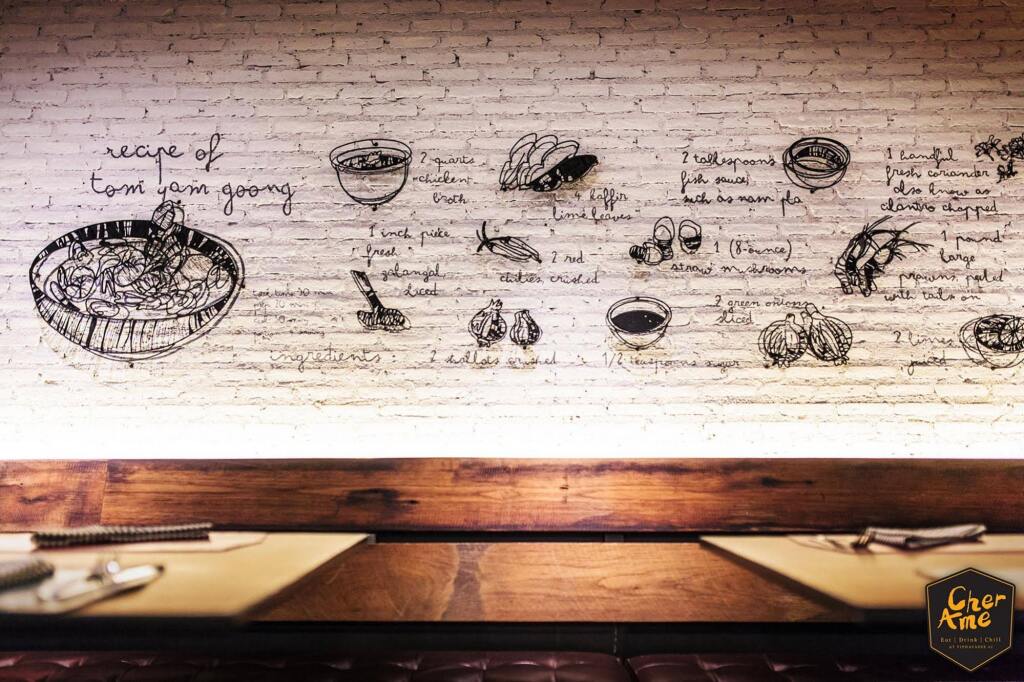 recipe of
tom yam goong
ingredients :
2 quarts
chicken
broth
4 kaffir
lime leaves
2 tablespoons
fish sauce,
such as nam pla
1 handful
fresh coriander
also know as
cilantro chopped
1 inch pieke
fresh
galangal
sliced
2 red
chilies crushed
1 (8-ounce)
straw mushrooms
1 pound
large
prawns peeled
with tails on
2 shallots crushed
1/2 teaspoons sugar
2 green onions
sliced
2 limes
juiced
Cher
Ame
Eat | Drink | Chill